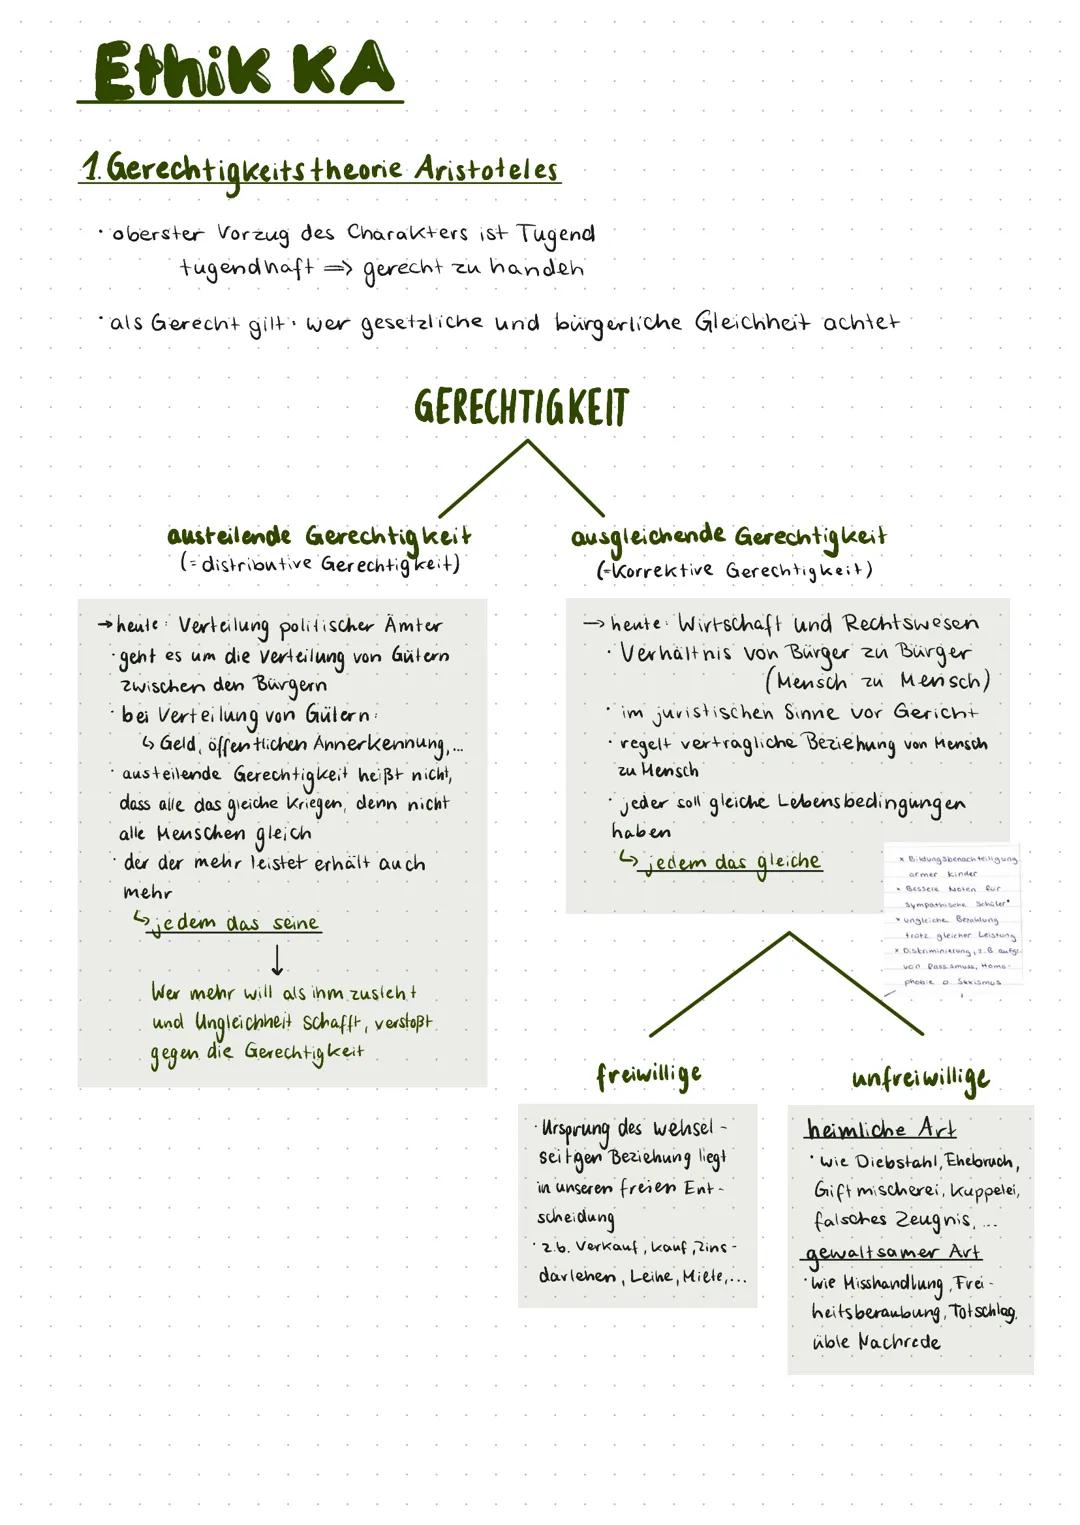 Ethik KA
1. Gerechtigkeitstheorie Aristoteles
· oberster Vorzug des Charakters ist Tugend
tugendhaft => gerecht zu handeln
· als Gerecht gilt: wer gesetzliche und bürgerliche Gleichheit achtet
GERECHTIGKEIT
austeilende Gerechtigkeit
(= distributive Gerechtigkeit)
→ heute: Verteilung politischer Ämter
· geht es um die Verteilung von Gütern
zwischen den Bürgern
· bei Verteilung von Gütern:
↳ Geld, öffentlichen Annerkennung,...
· austeilende Gerechtigkeit heißt nicht,
dass alle das gleiche kriegen, denn nicht
alle Menschen gleich
· der der mehr leistet erhält auch
mehr
↳ jedem das seine
↓
Wer mehr will als ihm zusteht
und Ungleichheit schafft, verstoßt
gegen die Gerechtigkeit
ausgleichende Gerechtigkeit
(=Korrektive Gerechtigkeit)
→ heute: Wirtschaft und Rechtswesen
· Verhältnis von Bürger zu Bürger
(Mensch zu Mensch)
· im juristischen Sinne vor Gericht
· regelt vertragliche Beziehung von Mensch
zu Mensch
· jeder soll gleiche Lebensbedingungen
haben
↳ jedem das gleiche
x Bildungsbenachteiligung
armer Kinder
x Bessere Noten für
sympathische Schüler
x ungleiche Bezahlung
trotz gleicher Leistung
x Diskriminierung, z.B. aufgr.
von Rassismuss, Homo-
phobie o. Sexismus
freiwillige
· Ursprung des wehsel-
seitgen Beziehung liegt
in unseren freien Ent-
scheidung
· z.b. Verkauf, kauf, Zins-
darlehen, Leihe, Miete,...
unfreiwillige
heimliche Art
· wie Diebstahl, Ehebruch,
Giftmischerei, Kuppelei,
falsches Zeugnis, ...
gewaltsamer Art
· wie Misshandlung, Frei-
heitsberaubung, Totschlag,
üble Nachrede